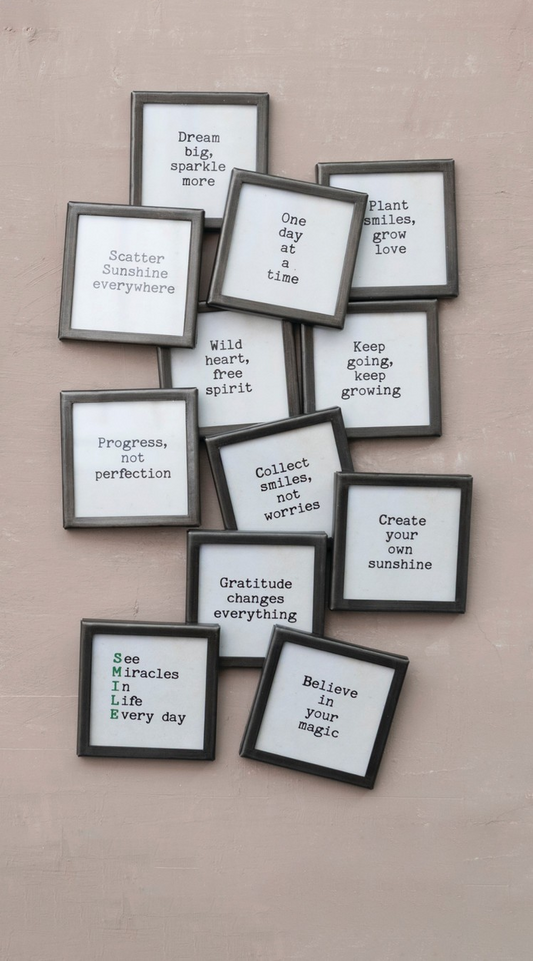 Dream
big,
sparkle
more
Plant
smiles,
grow
love
One
day
at
a
time
Scatter
Sunshine
everywhere
Wild
heart,
free
spirit
Keep
going,
keep
growing
Progress,
not
perfection
Collect
smiles,
not
worries
Create
your
own
sunshine
Gratitude
changes
everything
See
Miracles
In
Life
Every day
Believe
in
your
magic